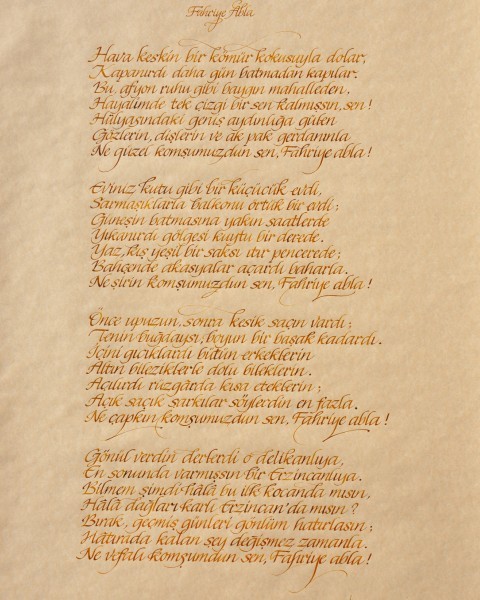 Fahriye Abla
Hava keskin bir kömür kokusuyla dolar,
Kapanırdı daha gün batmadan kapılar.
Bu, afyon ruhu gibi baygın mahalleden,
Hayalimde tek çizgi bir sen kalmışsın, sen!
Hülyasındaki geniş aydınlığa gülen
Gözlerin, dişlerin ve ak pak gerdanınla
Ne güzel komşumuzdun sen, Fahriye abla!
Eviniz kutu gibi bir küçücük evdi,
Sarmaşıklarla balkonu örtük bir evdi;
Güneşin batmasına yakın saatlerde
Yıkanırdı gölgesi kuytu bir derede.
Yaz, kış yeşil bir saksı ıtır pencerede;
Bahçende akasyalar açardı baharla.
Ne şirin komşumuzdun sen, Fahriye abla!
Önce upuzun, sonra kesik saçın vardı;
Tenin buğdaysı, boyun bir başak kadardı.
İçini gıcıklardı bütün erkeklerin
Altın bileziklerle dolu bileklerin.
Açılırdı rüzgârda kısa eteklerin;
Açık saçık şarkılar söylerdin en fazla.
Ne çapkın komşumuzdun sen, Fahriye abla!
Gönül verdin derlerdi o delikanlıya,
En sonunda varmışsın bir Erzincanlıya.
Bilmem şimdi hâlâ bu ilk kocanda mısın,
Hâlâ dağları karlı Erzincan'da mısın?
Bırak, geçmiş günleri gönlüm hatırlasın;
Hatırada kalan şey değişmez zamanla.
Ne vefalı komşumdun sen, Fahriye abla!